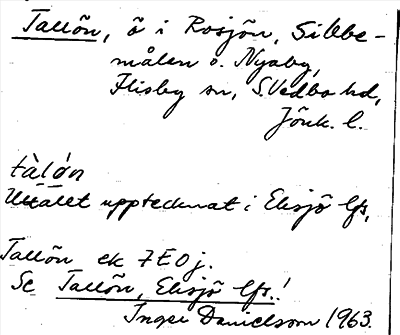 Tallön, ö i Rosjön, Sibbe-
målen o. Nyaby,
Flisby sn, S.Vedbo hd,
Jönk. l.
tàlơn
Uttalet upptecknat i Eksjö lfs.
Tallön ek 7E0j.
Se Tallön, Eksjö lfs.!
Inger Danielsson 1963.